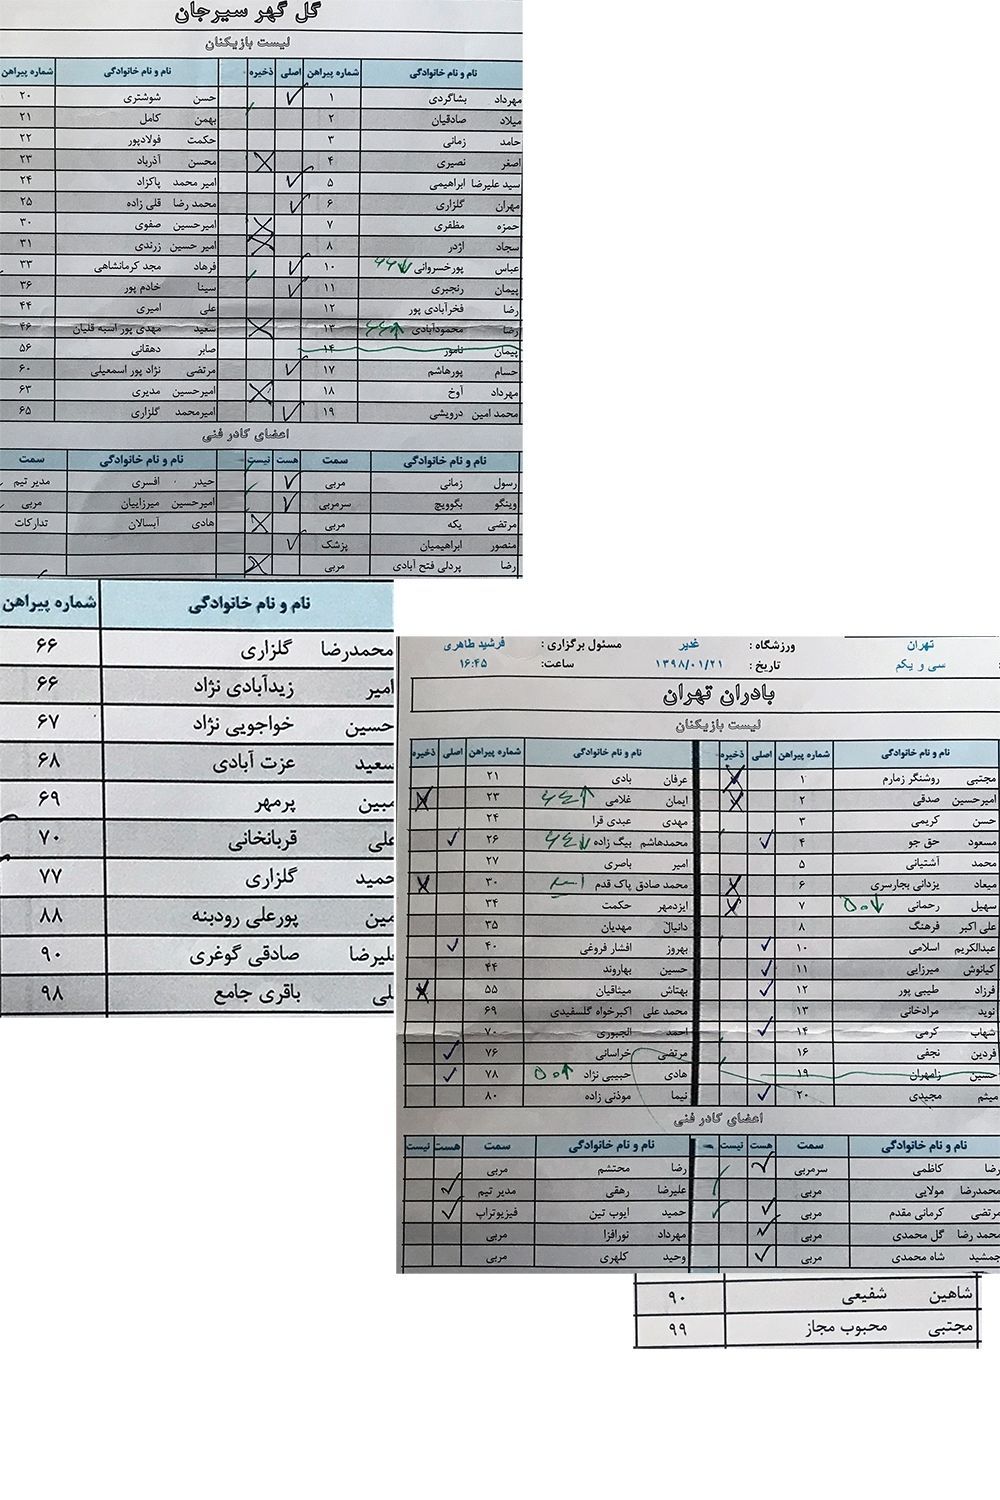 گل گهر سیرجان
لیست بازیکنان
نام و نام خانوادگی شماره پیراهن اصلی ذخیره نام و نام خانوادگی شماره پیراهن
مهرداد بشاگردی ۱ حسن شوشتری ۲۰
میلاد صادقیان ۲ بهمن کامل ۲۱
حامد زمانی ۳ حکمت فولادپور ۲۲
اصغر نصیری ۴ محسن آذرباد ۲۳
سید علیرضا ابراهیمی ۵ امیر محمد پاکزاد ۲۴
مهران گلزاری ۶ محمد رضا قلی زاده ۲۵
حمزه مظفری ۷ امیرحسین صفوی ۳۰
سجاد اژدر ۸ امیر حسین زرندی ۳۱
عباس پورخسروانی ۱۰ فرهاد مجد کرمانشاهی ۳۳
پیمان رنجبری ۱۱ سینا خادم پور ۳۶
رضا فخرآبادی پور ۱۲ علی امیری ۴۴
رضا محمودآبادی ۱۳ سعید مهدی پور اسبه قلیان ۴۶
پیمان نامور ۱۴ صابر دهقانی ۵۶
حسام پورهاشم ۱۷ مرتضی نژاد پور اسمعیلی ۶۰
مهرداد آوخ ۱۸ امیرحسین مدیری ۶۳
محمد امین درویشی ۱۹ امیرمحمد گلزاری ۶۵
اعضای کادر فنی
نام و نام خانوادگی سمت هست نیست نام و نام خانوادگی سمت
رسول زمانی مربی حیدر افسری مدیر تیم
وینگو بگوویچ سرمربی امیرحسین میرزاییان مربی
مرتضی یکه مربی هادی آبسالان تدارکات
منصور ابراهیمیان پزشک
رضا پردلی فتح آبادی مربی
نام و نام خانوادگی شماره پیراهن
محمدرضا گلزاری ۶۶
امیر زیدآبادی نژاد ۶۶
حسین خواجویی نژاد ۶۷
سعید عزت آبادی ۶۸
مبین پرمهر ۶۹
علی قربانخانی ۷۰
حمید گلزاری ۷۷
مین پورعلی رودبنه ۸۸
لیرضا صادقی گوغری ۹۰
لی باقری جامع ۹۸
تهران ورزشگاه : غدیر مسئول برگزاری : فرشید طاهری
سی و یکم تاریخ : ۱۳۹۸/۰۱/۲۱ ساعت: ۱۶:۴۵
بادران تهران
لیست بازیکنان
نام و نام خانوادگی شماره پیراهن اصلی ذخیره نام و نام خانوادگی شماره پیراهن اصلی ذخیره
مجتبی روشنگر زمارم ۱ عرفان بادی ۲۱
امیرحسین صدقی ۲ ایمان غلامی ۲۳
حسن کریمی ۳ مهدی عبدی قرا ۲۴
مسعود حق جو ۴ محمدهاشم بیگ زاده ۲۶
محمد آشتیانی ۵ امیر باصری ۲۷
میعاد یزدانی بجارسری ۶ محمد صادق پاک قدم ۳۰
سهیل رحمانی ۷ ایزدمهر حکمت ۳۴
علی اکبر فرهنگ ۸ دانیال مهدیان ۳۵
عبدالکریم اسلامی ۱۰ بهروز افشار فروغی ۴۰
کیانوش میرزایی ۱۱ حسین بهاروند ۴۴
فرزاد طیبی پور ۱۲ بهتاش میثاقیان ۵۵
نوید مرادخانی ۱۳ محمد علی اکبرخواه گلسفیدی ۶۹
شهاب کرمی ۱۴ احمد الجبوری ۷۰
فردین نجفی ۱۶ مرتضی خراسانی ۷۶
حسین زامهران ۱۹ هادی حبیبی نژاد ۷۸
میثم مجیدی ۲۰ نیما موذنی زاده ۸۰
اعضای کادر فنی
نام و نام خانوادگی سمت هست نیست نام و نام خانوادگی سمت هست نیست
رضا کاظمی سرمربی رضا محتشم مربی
محمدرضا مولایی مربی علیرضا رهقی مدیر تیم
مرتضی کرمانی مقدم مربی حمید ایوب تین فیزیوتراپ
محمد رضا گل محمدی مربی مهرداد نورافزا مربی
جمشید شاه محمدی مربی وحید کلهری مربی
شاهین شفیعی ۹۰
مجتبی محبوب مجاز ۹۹